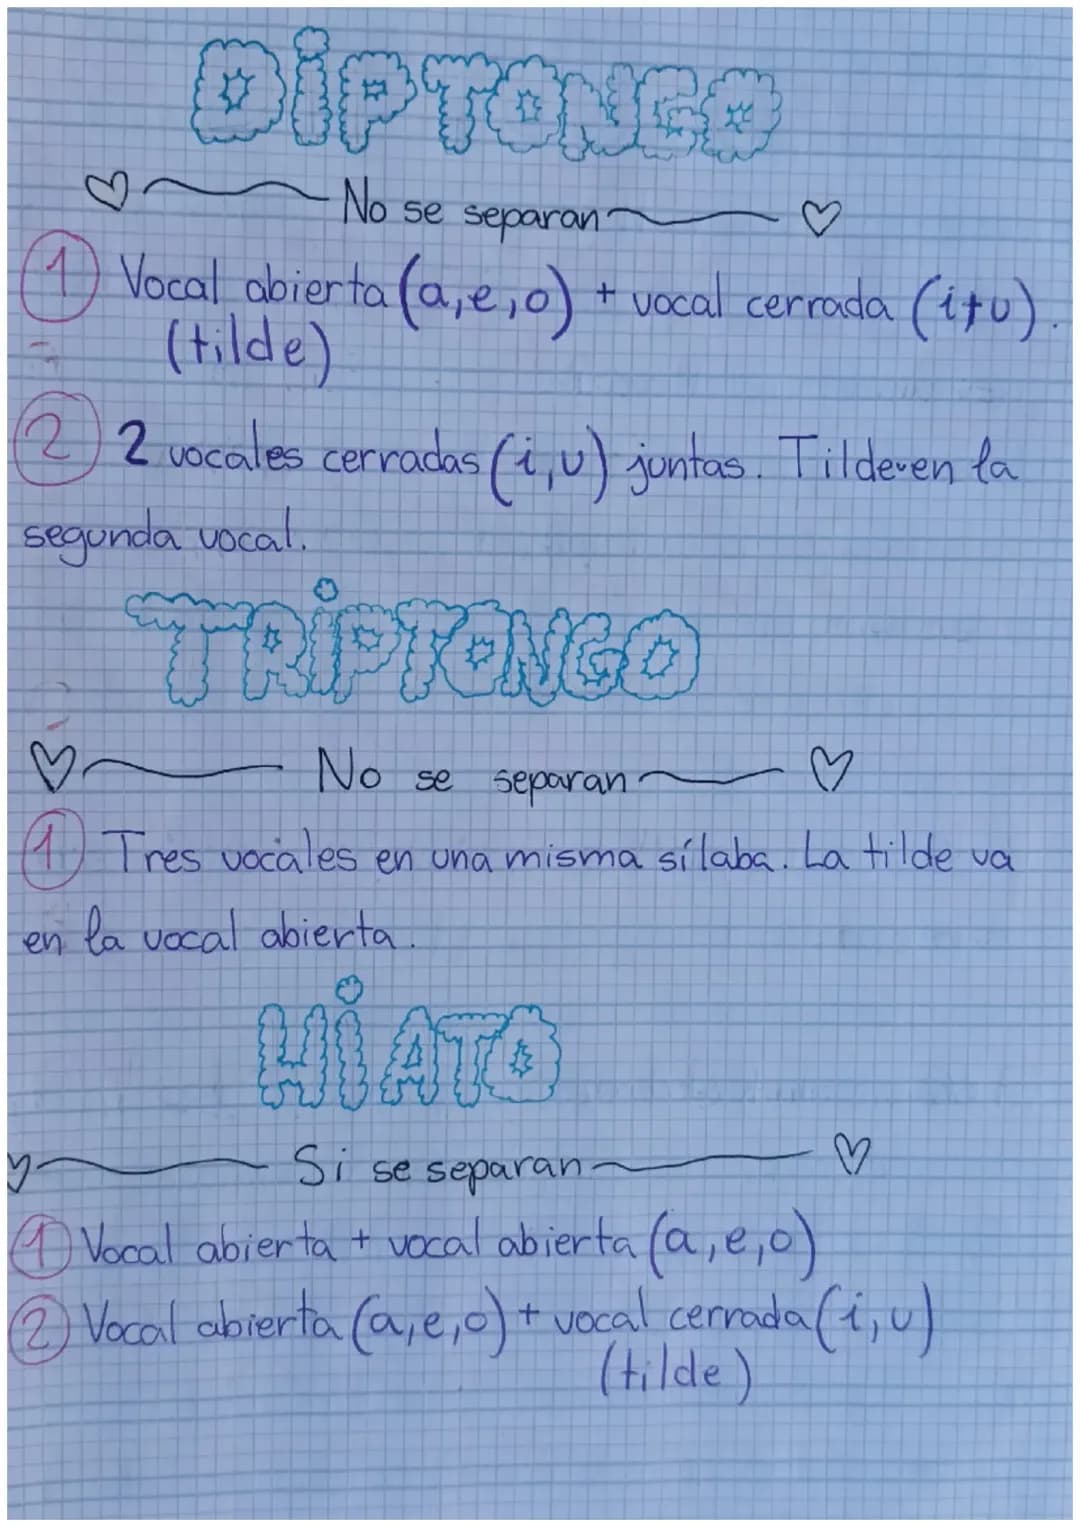 DiPTONGO
No se separan
1 Vocal abierta (a,e,o) + vocal cerrada (i+u).
(tilde)
2 2 vocales cerradas (i,u) juntas. Tilde en la
segunda vocal.
TRiPTONGO
No se separan
1 Tres vocales en una misma sílaba. La tilde va
en la vocal abierta.
HiATO
Si se separan
1 Vocal abierta + vocal abierta (a,e,o)
2 Vocal abierta (a,e,o) + vocal cerrada (i,u)
(tilde)